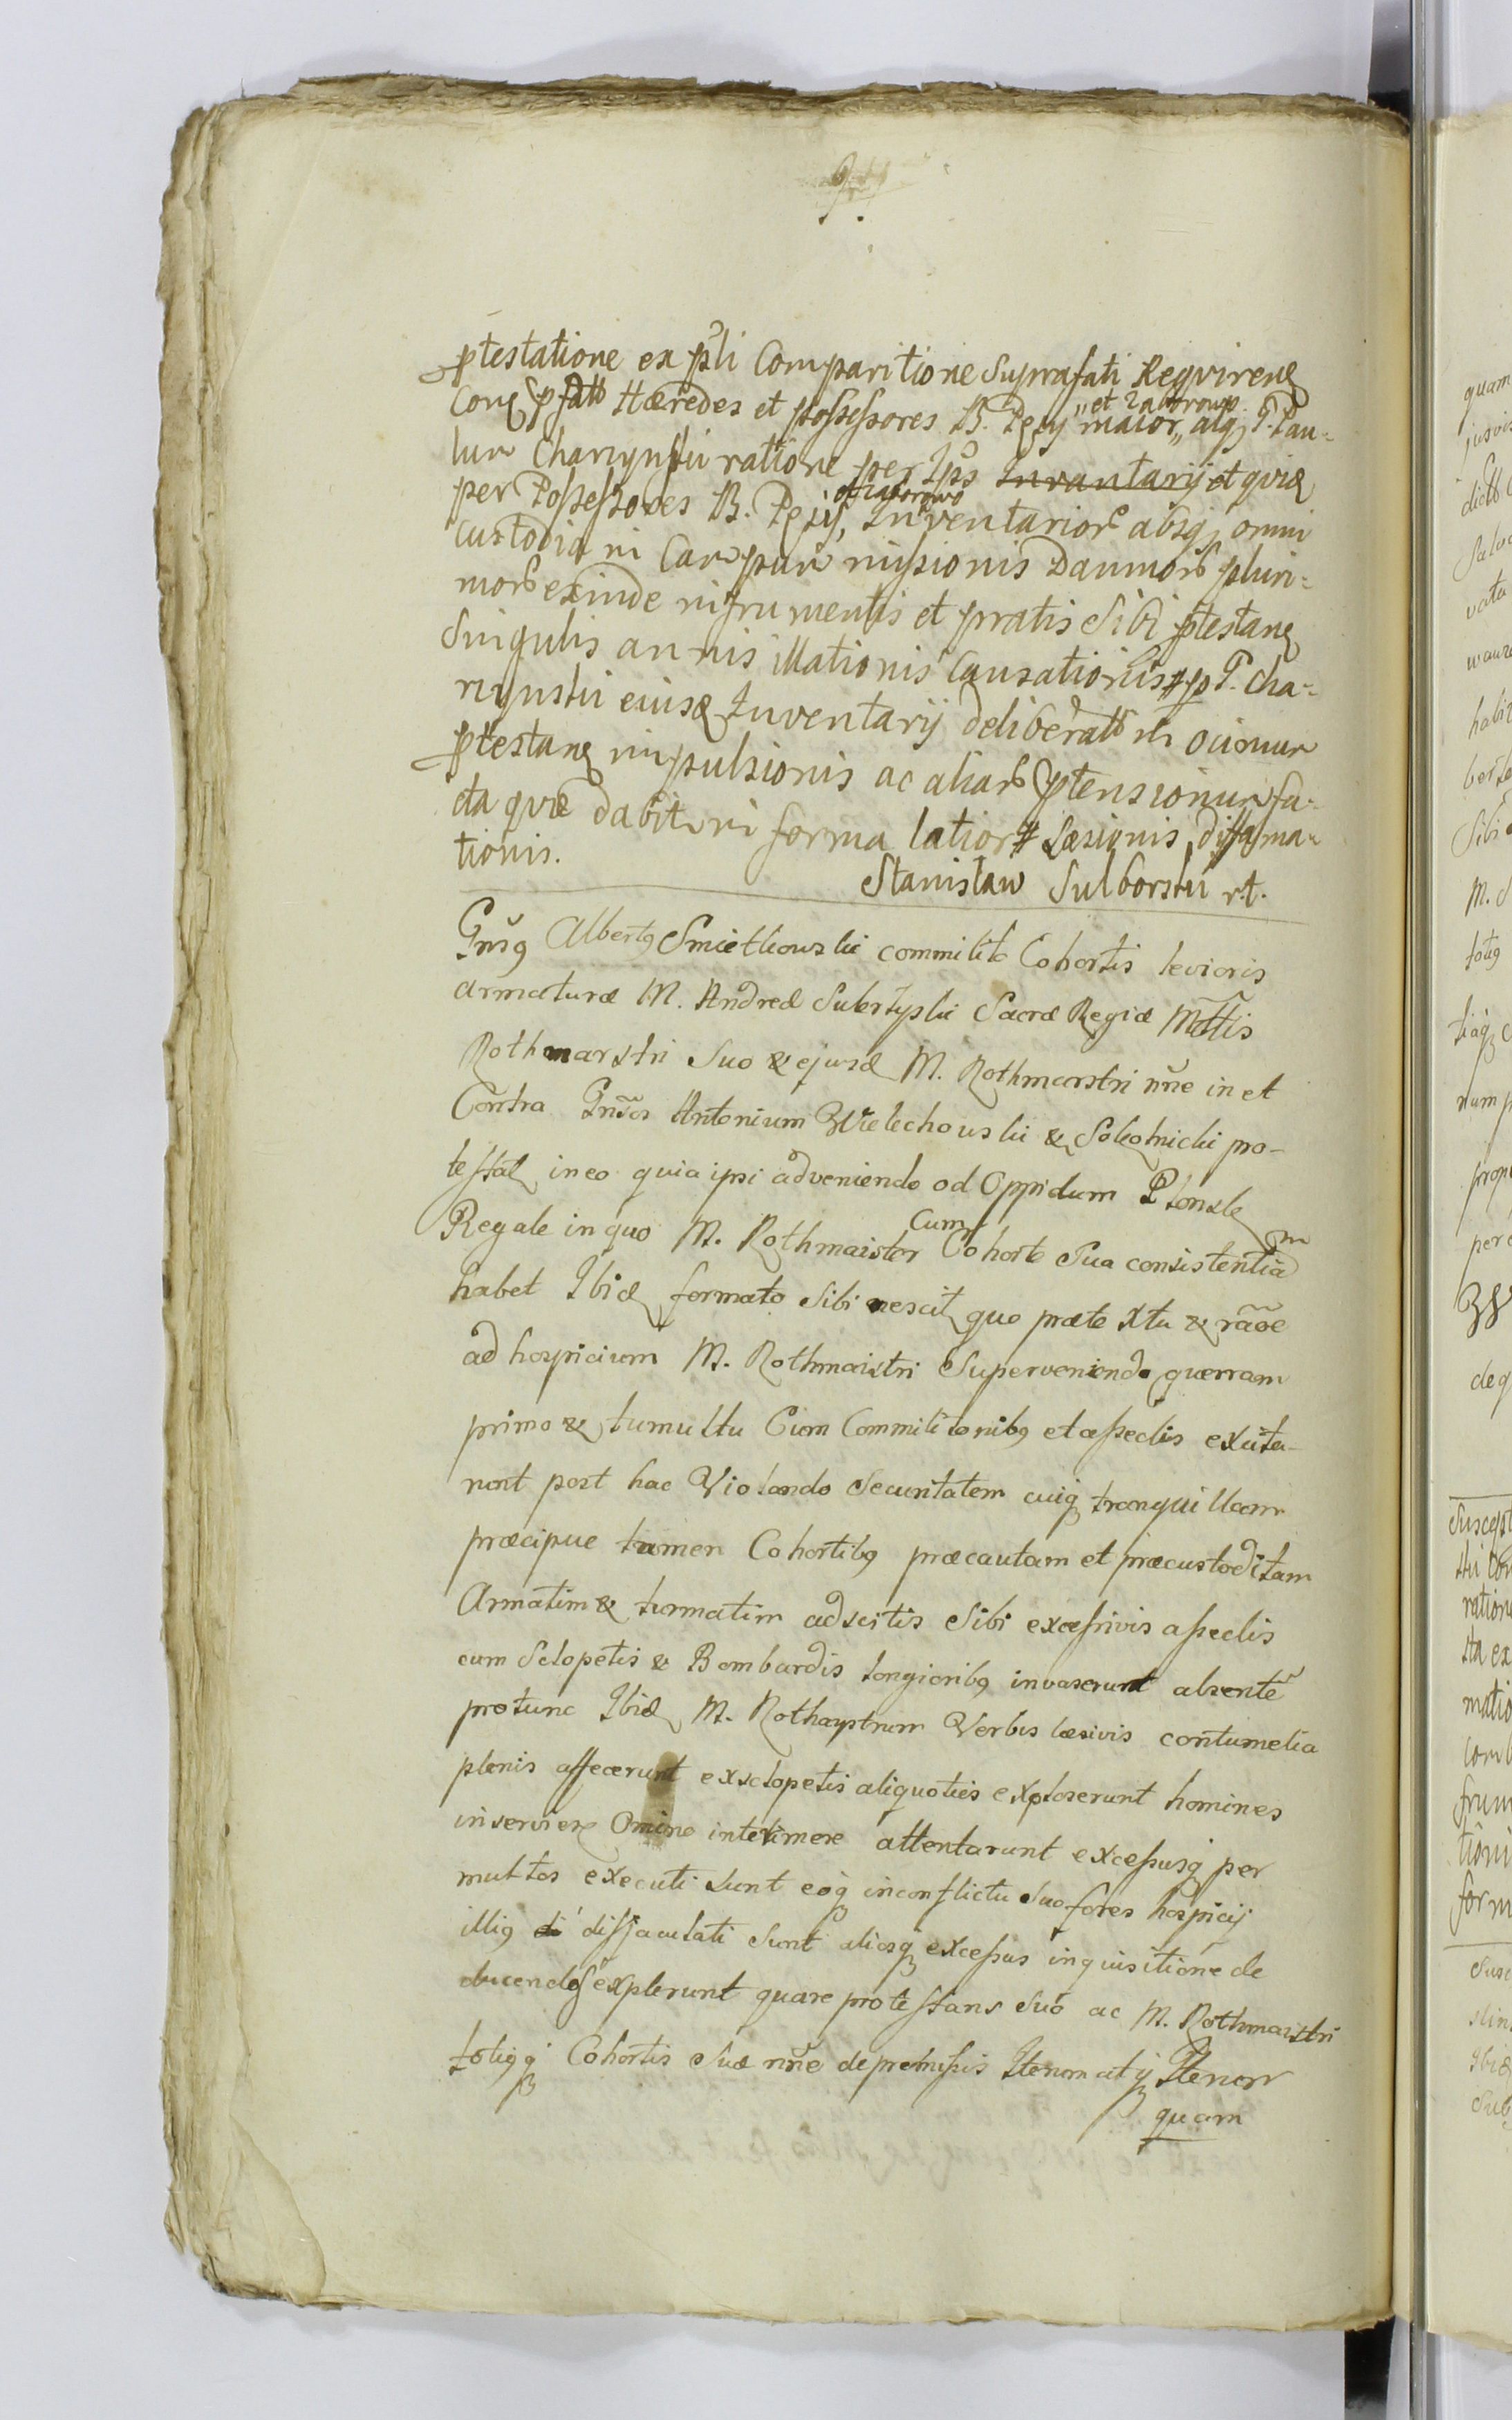 ptestatione ex pñti Comparitione Suprafati Reqviren
Con pfatt Hæredes et possessores B. Pęzy „maior„ atq P. Pau-
et Zaborowo
lum Charzynski ratione per Ipõs Invantarij et qvia
per Possessores B. Pęzij, Inventarior absq omni
et Zaborowo
custodia in Campum missionis Damnor pluri-
mor exinde in frumentis et pratis Sibi ptestan
Singulis annis illationis Causationis p P. Cha-
rzynski eiusd Inventarij deliberatt in
ptestan impulsionis ac aliar ptensionum fa-
cta qvæ dabitur in forma latior Læsionis, diffama-
tionis.
Stanisław Sulborski
Gnsg Albertg Smietkowski commilito Cohortis levioris
armaturæ M. Andreæ Sacræ Regiæ Mattis
Rothmaistri Suo & ejusd M. Rothmaistri nne in et
Contra Gnsos Antonium Wielechowski & Sokolnicki pro-
testat in eo quia ipsi adveniendo ad Oppidum Płonsk
Regale in quo M. Rothmaister Cum Cohorte Sua consistentiam
habet Ibid formato Sibi nescit quo prætextu & rãoe
ad hospicium M. Rothmaistri Superveniendo guerram
primo & tumultu Cum Commilitonibg et asseclis excita-
runt post hac Violando Securitatem cuiq tranquillam
præcipue tamen Cohortibg præcautam et præcustoditam
Armatim & turmatim adscitis Sibi excessivis asseclis
cum Sclopetis & Bombardis longioribg invaserunt absente
protunc Ibid M. Rothaystrum Verbis læsivis contumelia
plenis affecerunt ex sclopetis aliquoties exploserunt homines
inservien Omino interimere attentarunt excessusq per
multos executi sunt eoq in conflictu Suo fores hospicij
illig di dissjaculati Sunt aliosq excessus inquisitione de
ducendos explerunt quare protestans Suo ac M. Rothmaistri
totigq Cohortis Suæ nne depremissis Iterum atq Iterum
quam